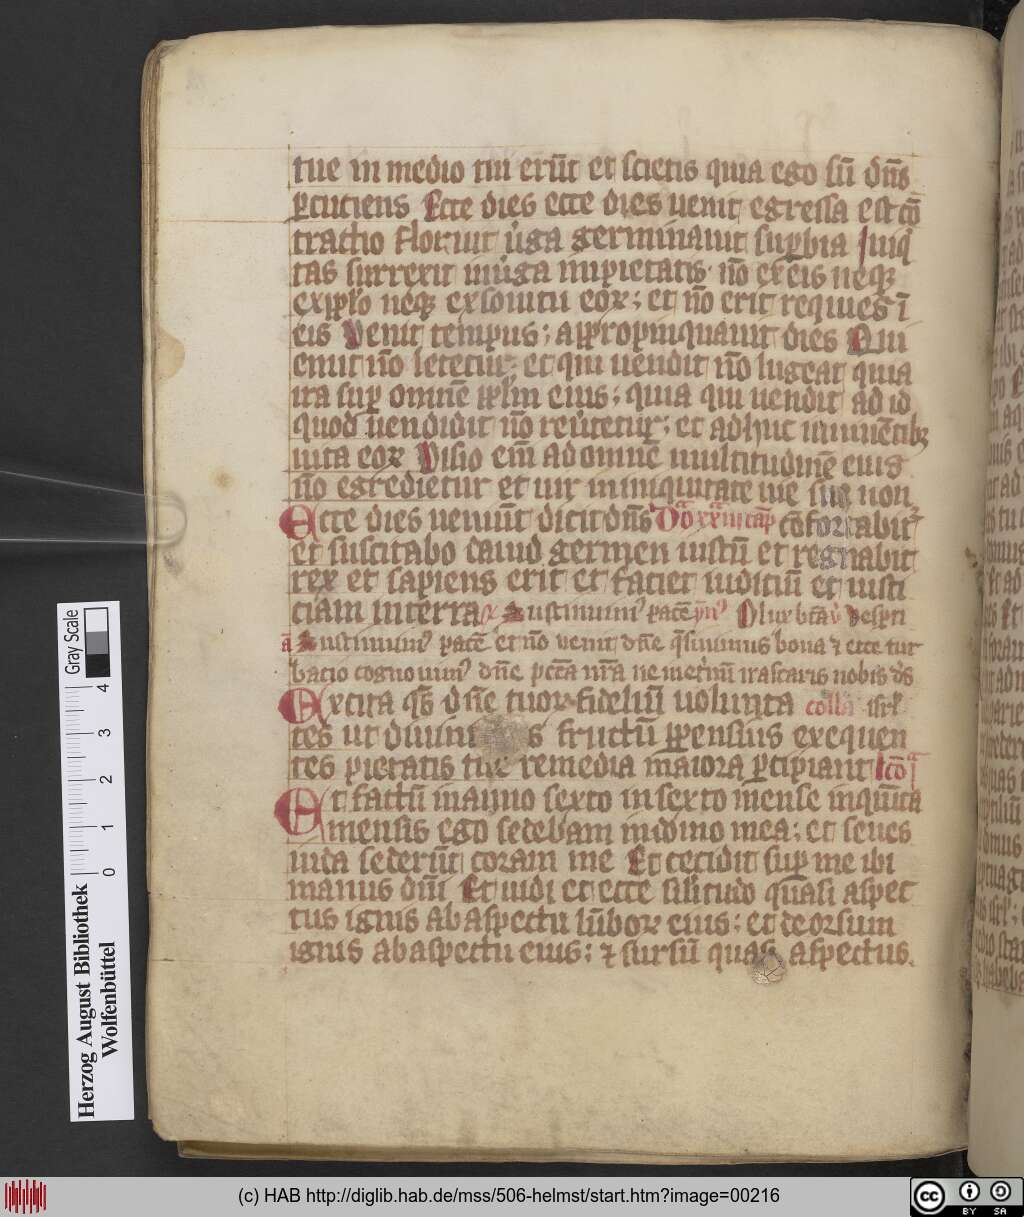 tue in medio tui erūt et scietis quia ego sū dn̄s
ꝑcutiens Ecce dies ecce dies uenit egressa est cō
tractio floruit u̇ga germinauit suꝑbia Iniq̇
tas surrexit in uirga impietatis nō ex eis neqꝫ
ex pplo neqꝫ ex sonitu eoꝝ; et nō erit requies ī
eis Venit tempus; appropinquauit dies Qui
emit nō letetur; et qui uendit nō lugeat quia
ira suꝑ omnē pplm eius; quia qui uendit ad id
quod uendidit nō reu̇tetur; et adhuc in uiuētibꝫ
uita eoꝝ Visio em̄ ad omnē multitudinē eius
nō egredietur et uir in iniquitate uie sue non
Ecce dies ueniūt dicit dn̄s cōfortabitur
et suscitabo dauid germen iustū et regnabit
rex et sapiens erit et faciet iuditiū et iusti
ciam in terra Sustinuimꝰ pacē
Sustinuimꝰ pacē et nō uenit dn̄e q̄siuimus bona ⁊ ecce tur
bacio cognouimꝰ dn̄e pctā nr̄a ne in et̄nū irascaris nobis ds̄
Excita qs̄ dn̄e tuoꝝ fideliū uolunta colla isrl
tes ut diuini s fructū ꝓpensius exequen
tes pietatis tue remedia maiora ꝑcipiant lcō
Et factū in anno sexto in sexto mense in quīta
mensis ego sedebam in domo mea; et senes
iuda sederūt coram me Et cecidit suꝑ me ibi
manus dn̄i Et uidi et ecce silitudo quasi aspec
tus ignis ab aspectu lūboꝝ eius; et deorsum
ignis ab aspectu eius; ⁊ sursū quasi aspectus
Gray Scale
4
3
2
1
0
Herzog August Bibliothek
Wolfenbüttel
(c) HAB http://diglib.hab.de/mss/506-helmst/start.htm?image=00216
cc BY SA